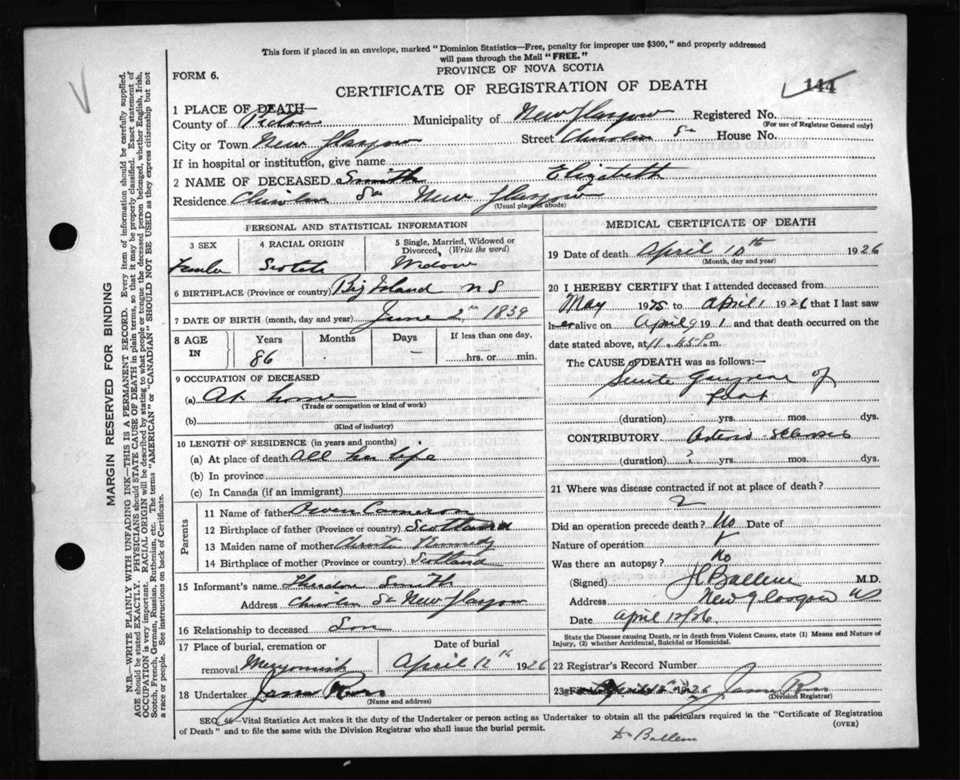 This form if placed in an envelope, marked "Dominion Statistics—Free, penalty for improper use $300," and properly addressed
will pass through the Mail "FREE."
PROVINCE OF NOVA SCOTIA
FORM 6.
CERTIFICATE OF REGISTRATION OF DEATH
144
1 PLACE OF DEATH—
County of Pictou Municipality of New Glasgow Registered No.
(For use of Registrar General only)
City or Town New Glasgow Street House No.
If in hospital or institution, give name
2 NAME OF DECEASED Smith Elizabeth
Residence New Glasgow
(Usual place of abode)
PERSONAL AND STATISTICAL INFORMATION
3 SEX 4 RACIAL ORIGIN 5 Single, Married, Widowed or Divorced, (Write the word)
Female Scotch Widow
6 BIRTHPLACE (Province or country) Big Island N S
7 DATE OF BIRTH (month, day and year) June 2nd 1839
8 AGE IN Years Months Days If less than one day,
86 — hrs. or min.
9 OCCUPATION OF DECEASED
(a) At home
(Trade or occupation or kind of work)
(b)
(Kind of industry)
10 LENGTH OF RESIDENCE (in years and months)
(a) At place of death All her life
(b) In province
(c) In Canada (if an immigrant)
Parents
11 Name of father Owen Cameron
12 Birthplace of father (Province or country) Scotland
13 Maiden name of mother Kennedy
14 Birthplace of mother (Province or country) Scotland
15 Informant's name Smith
Address New Glasgow
16 Relationship to deceased Son
17 Place of burial, cremation or Date of burial
removal Merigomish April 12th 1926
18 Undertaker James Ross
(Name and address)
MEDICAL CERTIFICATE OF DEATH
19 Date of death April 10th 1926
(Month, day and year)
20 I HEREBY CERTIFY that I attended deceased from
May 19 to April 1926 that I last saw
her alive on April 9 191 and that death occurred on
date stated above, at 11.45 P. m.
The CAUSE of DEATH was as follows:—
Senile Gangrene of
foot
(duration) yrs. mos. dys.
CONTRIBUTORY Arterio-sclerosis
(duration) ? yrs. mos. dys.
21 Where was disease contracted if not at place of death?
Did an operation precede death? No Date of
Nature of operation
Was there an autopsy? No
(Signed) Ballem M.D.
Address New Glasgow NS
Date April
State the Disease causing Death, or in death from Violent Causes, state (1) Means and Nature of
Injury, (2) whether Accidental, Suicidal or Homicidal.
22 Registrar's Record Number
23 Filed April 1926 James Ross
(Division Registrar)
SEC. 46—Vital Statistics Act makes it the duty of the Undertaker or person acting as Undertaker to obtain all the particulars required in the "Certificate of Registration
of Death" and to file the same with the Division Registrar who shall issue the burial permit.
(OVER)
Dr Ballem
MARGIN RESERVED FOR BINDING
N.B.—WRITE PLAINLY WITH UNFADING INK—THIS IS A PERMANENT RECORD. Every item of information should be carefully supplied.
AGE should be stated EXACTLY. PHYSICIANS should STATE CAUSE OF DEATH in plain terms, so that it may be properly classified. Exact statement of
OCCUPATION is very important. RACIAL ORIGIN will be described by stating to what people or tongue the deceased person belonged, whether English, Irish,
Scotch, French, German, Russian, Ruthenian, etc. The terms "AMERICAN" or "CANADIAN" SHOULD NOT BE USED as they express citizenship but not
a race or people. See instructions on back of Certificate.